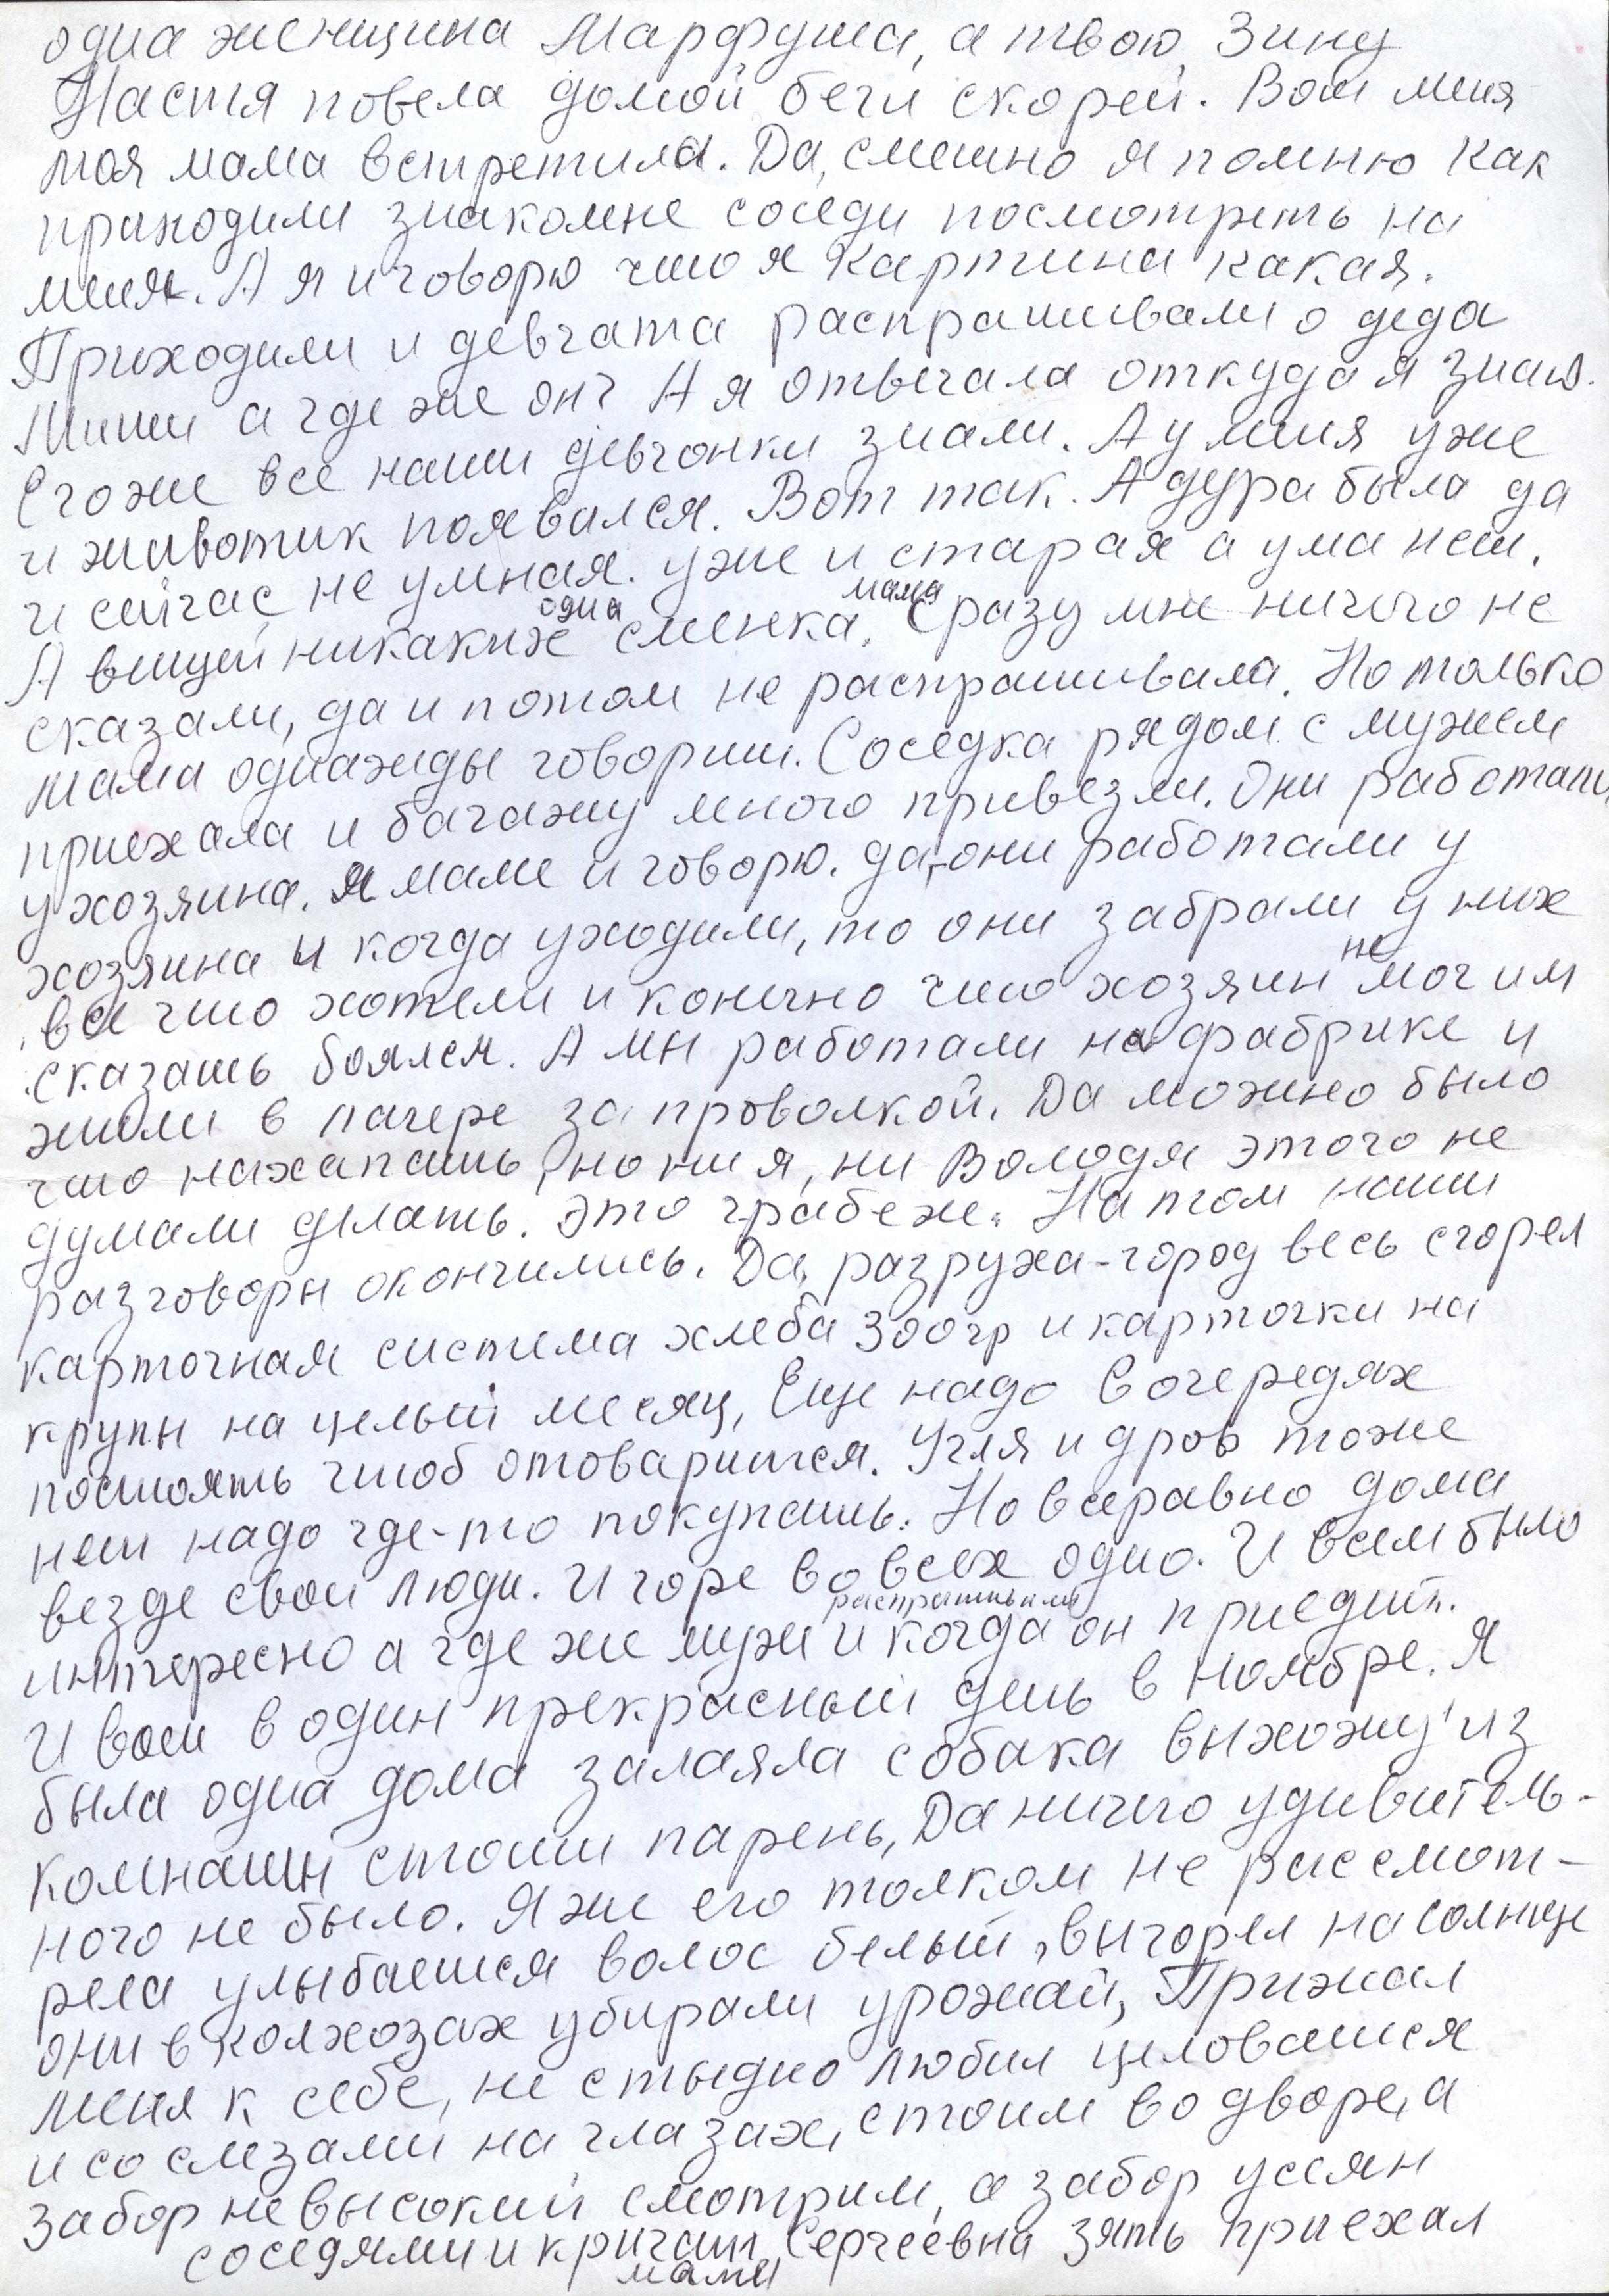 одна женщина Марфуша, а твою Зину
Настя повела домой беги скорей. Вот меня
моя мама встретила. Да, смешно я помню как
приходили знакомые соседи посмотреть на
меня. А я и говорю что я картина какая.
Приходили и девчата распрашивали о деда
Миши а где же он? А я отвечала откуда я знаю.
Его же все наши девчонки знали. А у меня уже
и животик появился. Вот так. А дура была да
и сейчас не умная. уже и старая а ума нет.
А вещей никаких одна сменка. мама Сразу мне ничего не
сказали, да и потом не распрашивала. Но только
мама однажды говорит. Соседка рядом с мужем
приехала и багажу много привезли. Они работали
у хозяина. Я маме и говорю. да, они работали у
хозяина и когда уходили, то они забрали у них
все что хотели и конечно что хозяин не мог им
сказать боялся. А мы работали на фабрике и
жили в лагере за проволкой. Да можно было
что нахапать, но ни я, ни Володя этого не
думали делать. Это грабеж. На том наши
разговоры окончились. Да, разруха-город весь сгорел
карточная система хлеба 300гр и карточки на
крупы на целый месяц, Еще надо в очередях
постоять чтоб отоварится. Угля и дров тоже
нет надо где-то покупать. Но всеравно дома
везде свои люди. И горе во всех одно. И всем было
интересно а где же муж распрашивали и когда он приедит.
И вот в один прекрасный день в ноябре. Я
была одна дома залаяла собака выхожу из
комнаты стоит парень, Да ничего удивитель-
ного не было. Я же его толком не рассмот-
рела улыбается волос белый, выгорел на солнце
они в колхозах убирали урожай, Прижал
меня к себе, не стыдно любил целоваться
и со слезами на глазах, стоим во дворе, а
забор невысокий смотрим, а забор усеян
соседями и кричат, Сергеевна зять приехал
мама